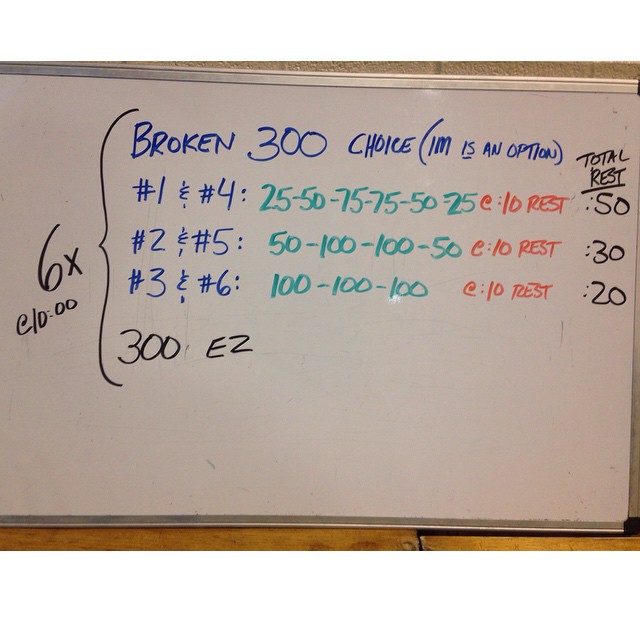 BROKEN 300 CHOICE (IM IS AN OPTION)
TOTAL REST
#1 & #4: 25-50-75-75-50-25 @ :10 REST :50
#2 & #5: 50-100-100-50 @ :10 REST :30
6x
#3 & #6: 100-100-100 @ :10 REST :20
@10:00
300 EZ